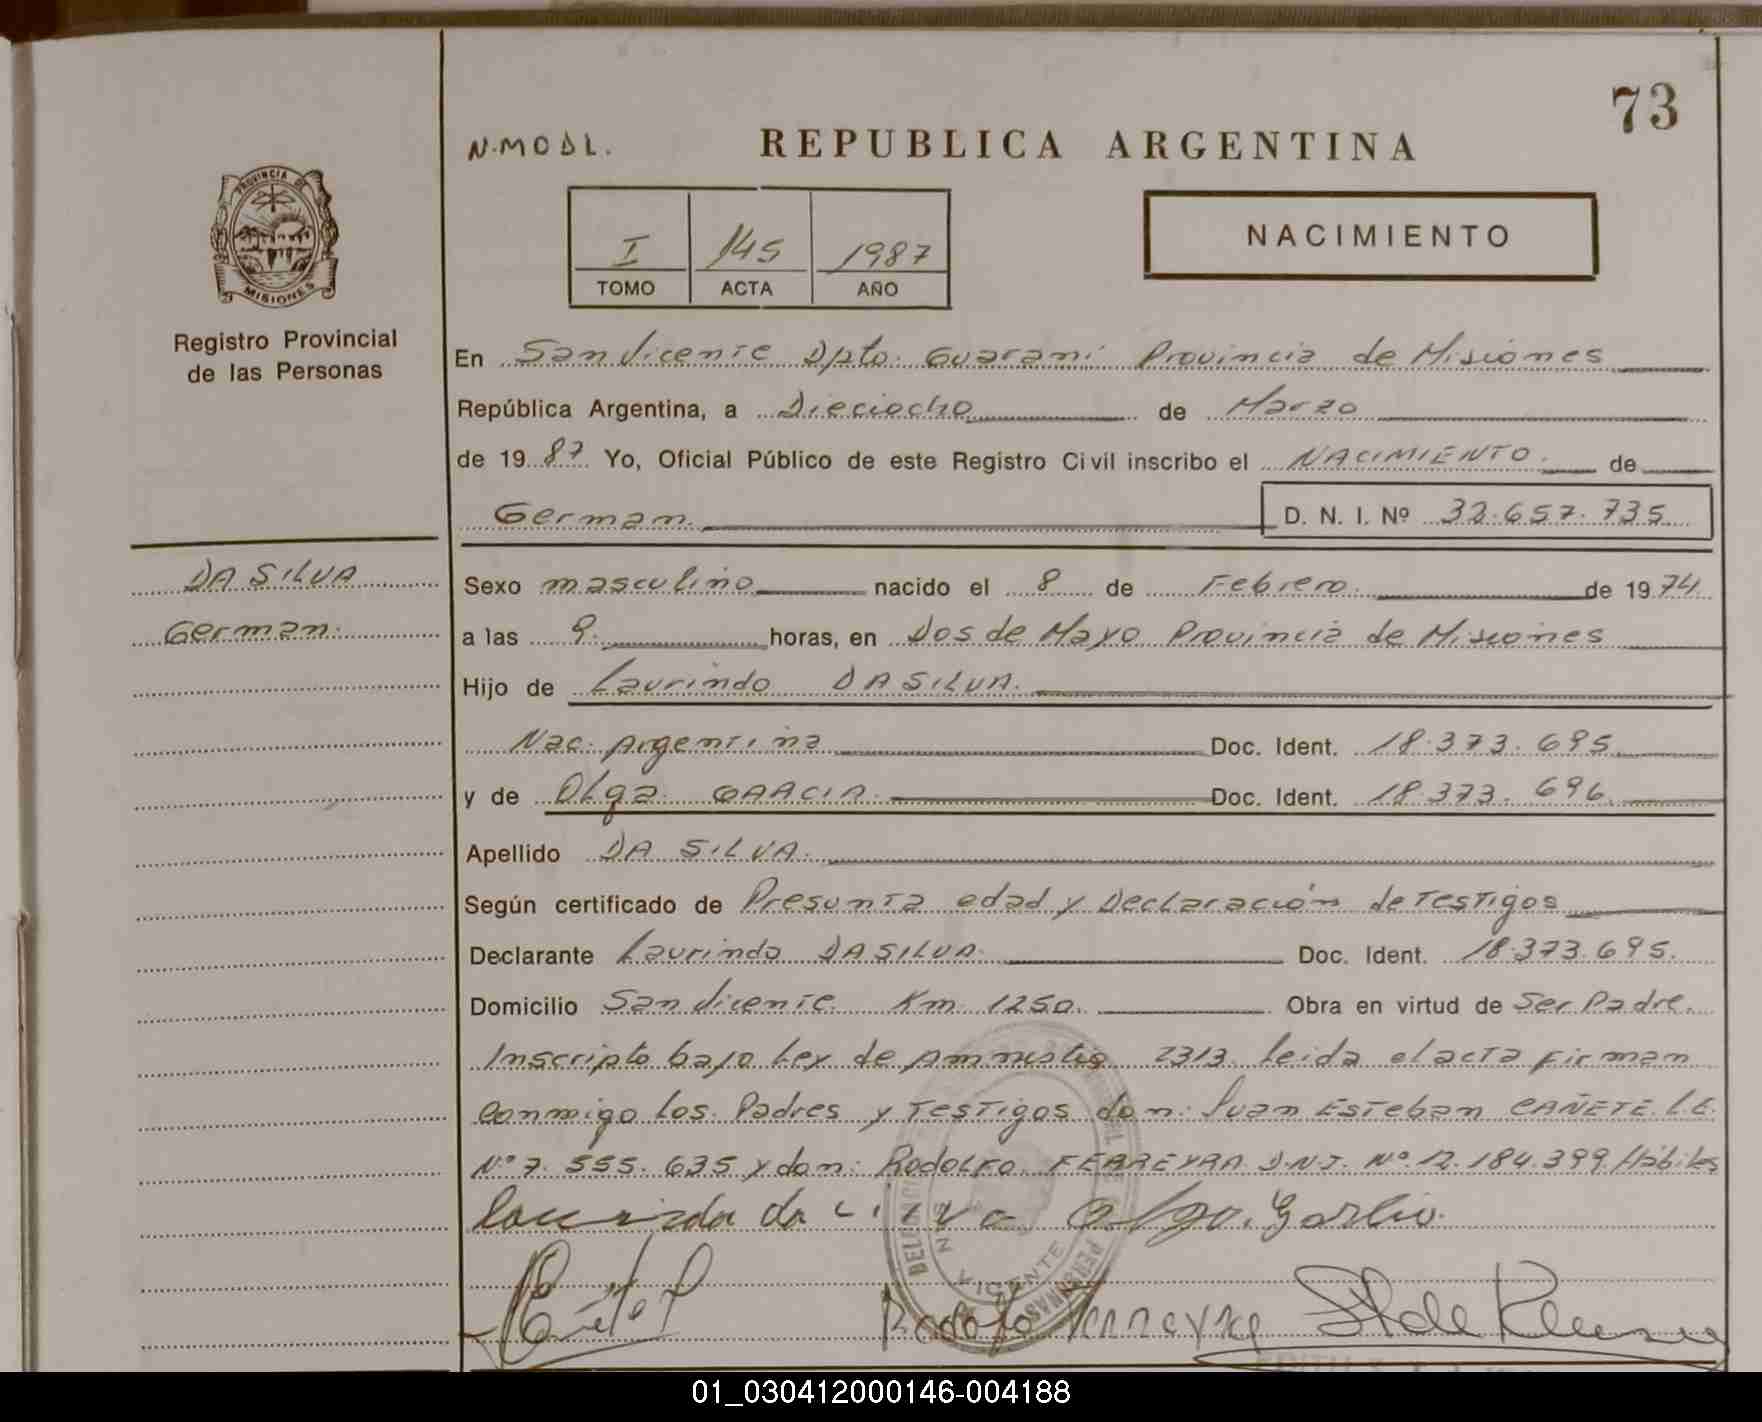 73
N.MODL.
REPUBLICA ARGENTINA
PROVINCIA DE
MISIONES
Registro Provincial
de las Personas
I 145 1987
TOMO ACTA AÑO
NACIMIENTO
En San Vicente Dpto. Guaraní Provincia de Misiones
República Argentina, a Dieciocho de Marzo
de 1987 Yo, Oficial Público de este Registro Civil inscribo el NACIMIENTO. de
German. D. N. I. Nº 32.657.735
DA SILVA
German.
Sexo masculino nacido el 8 de Febrero. de 1974
a las 9. horas, en Dos de Mayo Provincia de Misiones
Hijo de Laurindo DA SILVA.
Nac. Argentina Doc. Ident. 18.373.695
y de Olga GARCIA. Doc. Ident. 18.373.696
Apellido DA SILVA.
Según certificado de Presunta edad y Declaración de Testigos
Declarante Laurindo DA SILVA. Doc. Ident. 18.373.695.
Domicilio San Vicente Km 1250. Obra en virtud de Ser Padre.
Inscripto bajo Ley de Amnistia 2313. Leida el acta firman
conmigo los Padres y Testigos don: Juan Esteban CAÑETE L.E.
Nº 7.555.635 y don: Rodolfo FERREYRA D.N.I. Nº 12.184.399 Hábiles
VICENTE
Olga. Garcia
Rodolfo Ferreyra
01_030412000146-004188